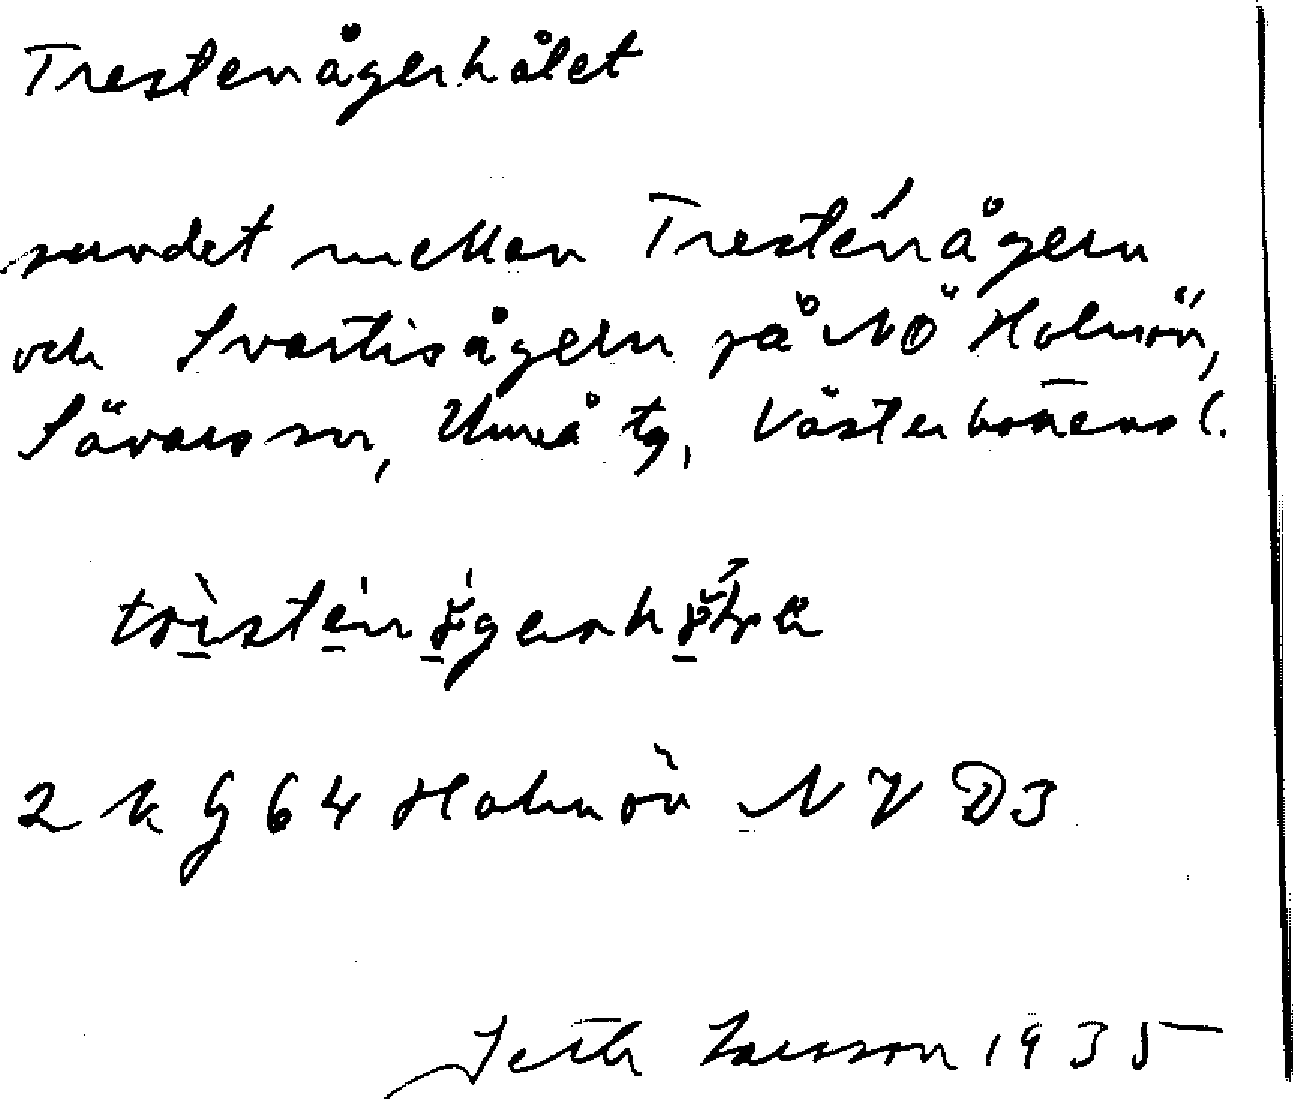 Trestenågerhålet
sundet mellan Trestenågern
och Svartisågern på NÖ Holmön,
Sävars sn, Umeå tg, Västerbottens l.
2 k G 64 Holmön NV D3
Seth Larsson 1935